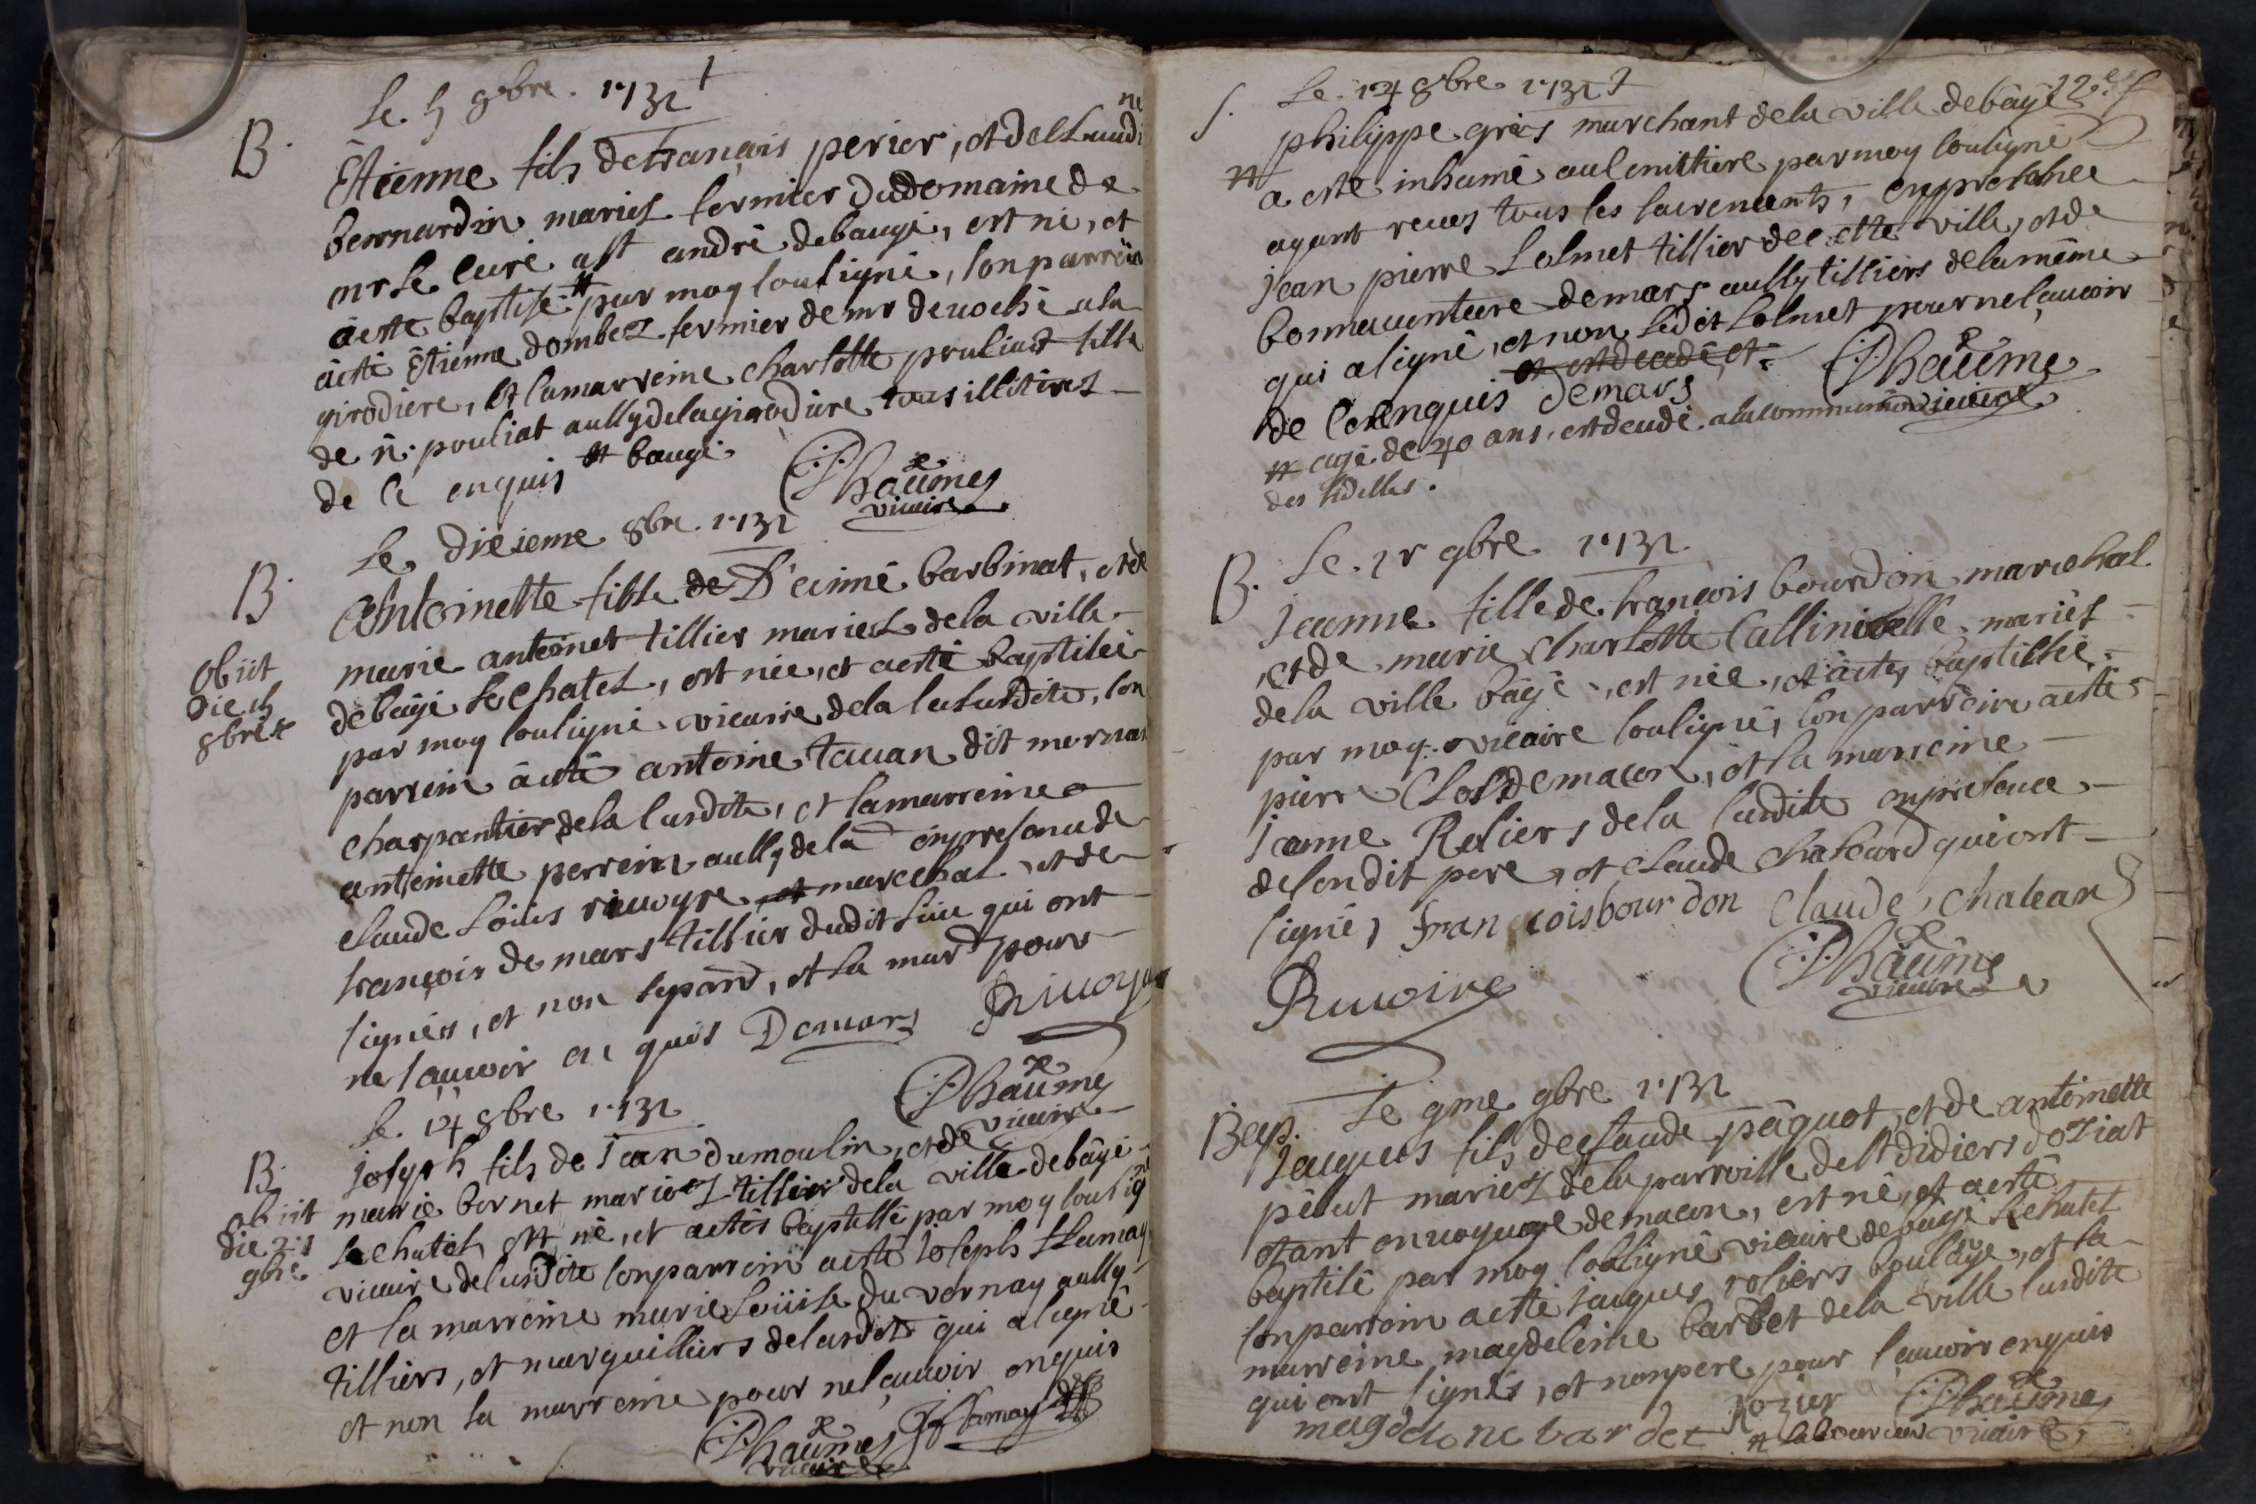 Le 5 8bre. 1732
B.
Étienne fils de francois perier, et de Claudine
bernardin mariés fermier du domaine de
mr le curé a st andré de baugé, est né, et
a esté baptisé # par moy soussigné, son parrein
a esté Étienne dombez fermier de mr de ... a la
girodiere, et sa marreine charlotte pouliat fille
de n: pouliat aussy de la girodiere tous illitirés
de ce enquis # baugé
Phaûme
vicaire
Le dixieme 8bre. 1732
B.
Antoinette fille de D'eimé barbinat, et de
marie antoinet tissier mariés de la ville
obiit
die
8bris
de bâgé le chatel, est née, et a esté baptisée
par moy soussigné vicaire de la susdite, son
parrein a esté antoine tavan dit
charpantier de la susdite, et la marreine
antoinette perrein aussy de la en presence de
claude Loüis rivoyre marechal et de
francois de mars tissier dudit lieu qui ont
signés, et non le parr, et la marr pour
ne sçauoir enquis Demars Rivoyre
Phaûme
vicaire
Le 14 8bre 1732
B.
Joseph fils de Jean dumoulin, et de
obiit
die
9bre
marie bernet mariés tissier de la ville de bâgé
le chatel, est né, et a esté baptissé par moy soussigné
vicaire de la susdite son parrein a esté Joseph
et la marreine marie Loüise du vernay aussy
tilliers, et marguilliers de la susdite qui a signé
et non la marreine pour ne sçauoir enquis
Phaûme
vicaire
Le 14 8bre 1732
S.
12e f
philippe gras marchant de la ville de bâgé
# a esté inhumé au cimittiere par moy soussigné
ayant receus tous les sacrements, en presence
Jean pierre Lolmet tissier de cette ville, et de
bonnaventure demars aussy tissiers de la même
qui a signé, et non ledit Lolmet pour ne sçauoir
de ce enquis Demars
Phaûme
vicaire
# agé de 40 ans, est decedé a la communion
des fidelles.
Le. 1r 9bre 1732
B.
Jeanne fille de francois bourdon marechal
et de marie charlotte mariés
de la ville bâgé, est née, et a esté baptissée
par moy vicaire soussigné, son parrein a esté
pierre Clos de macon, et la marreine
Jeanne Roliers de la susdite en presence
de son dit pere, et claude chaleard qui ont
signé, Francois bourdon Claude chalear
Rivoire
Phaûme
vicaire
Le 9me 9bre 1732
Bap.
Jaques fils de claude pâquot, et de antoinette
petut mariés de la parroisse de st didiers doziat
etant en voyage de macon, est né, et a esté
baptisé par moy soussigné vicaire de bâgé le chatel
son parrein a esté Jaques roliers boulâgé, et la
marreine magdeleine barbet de la ville susdite
qui ont signés, et non pere pour sçauoir enquis
magdelene bardet Rozier Phaûme
# laboureur vicaire